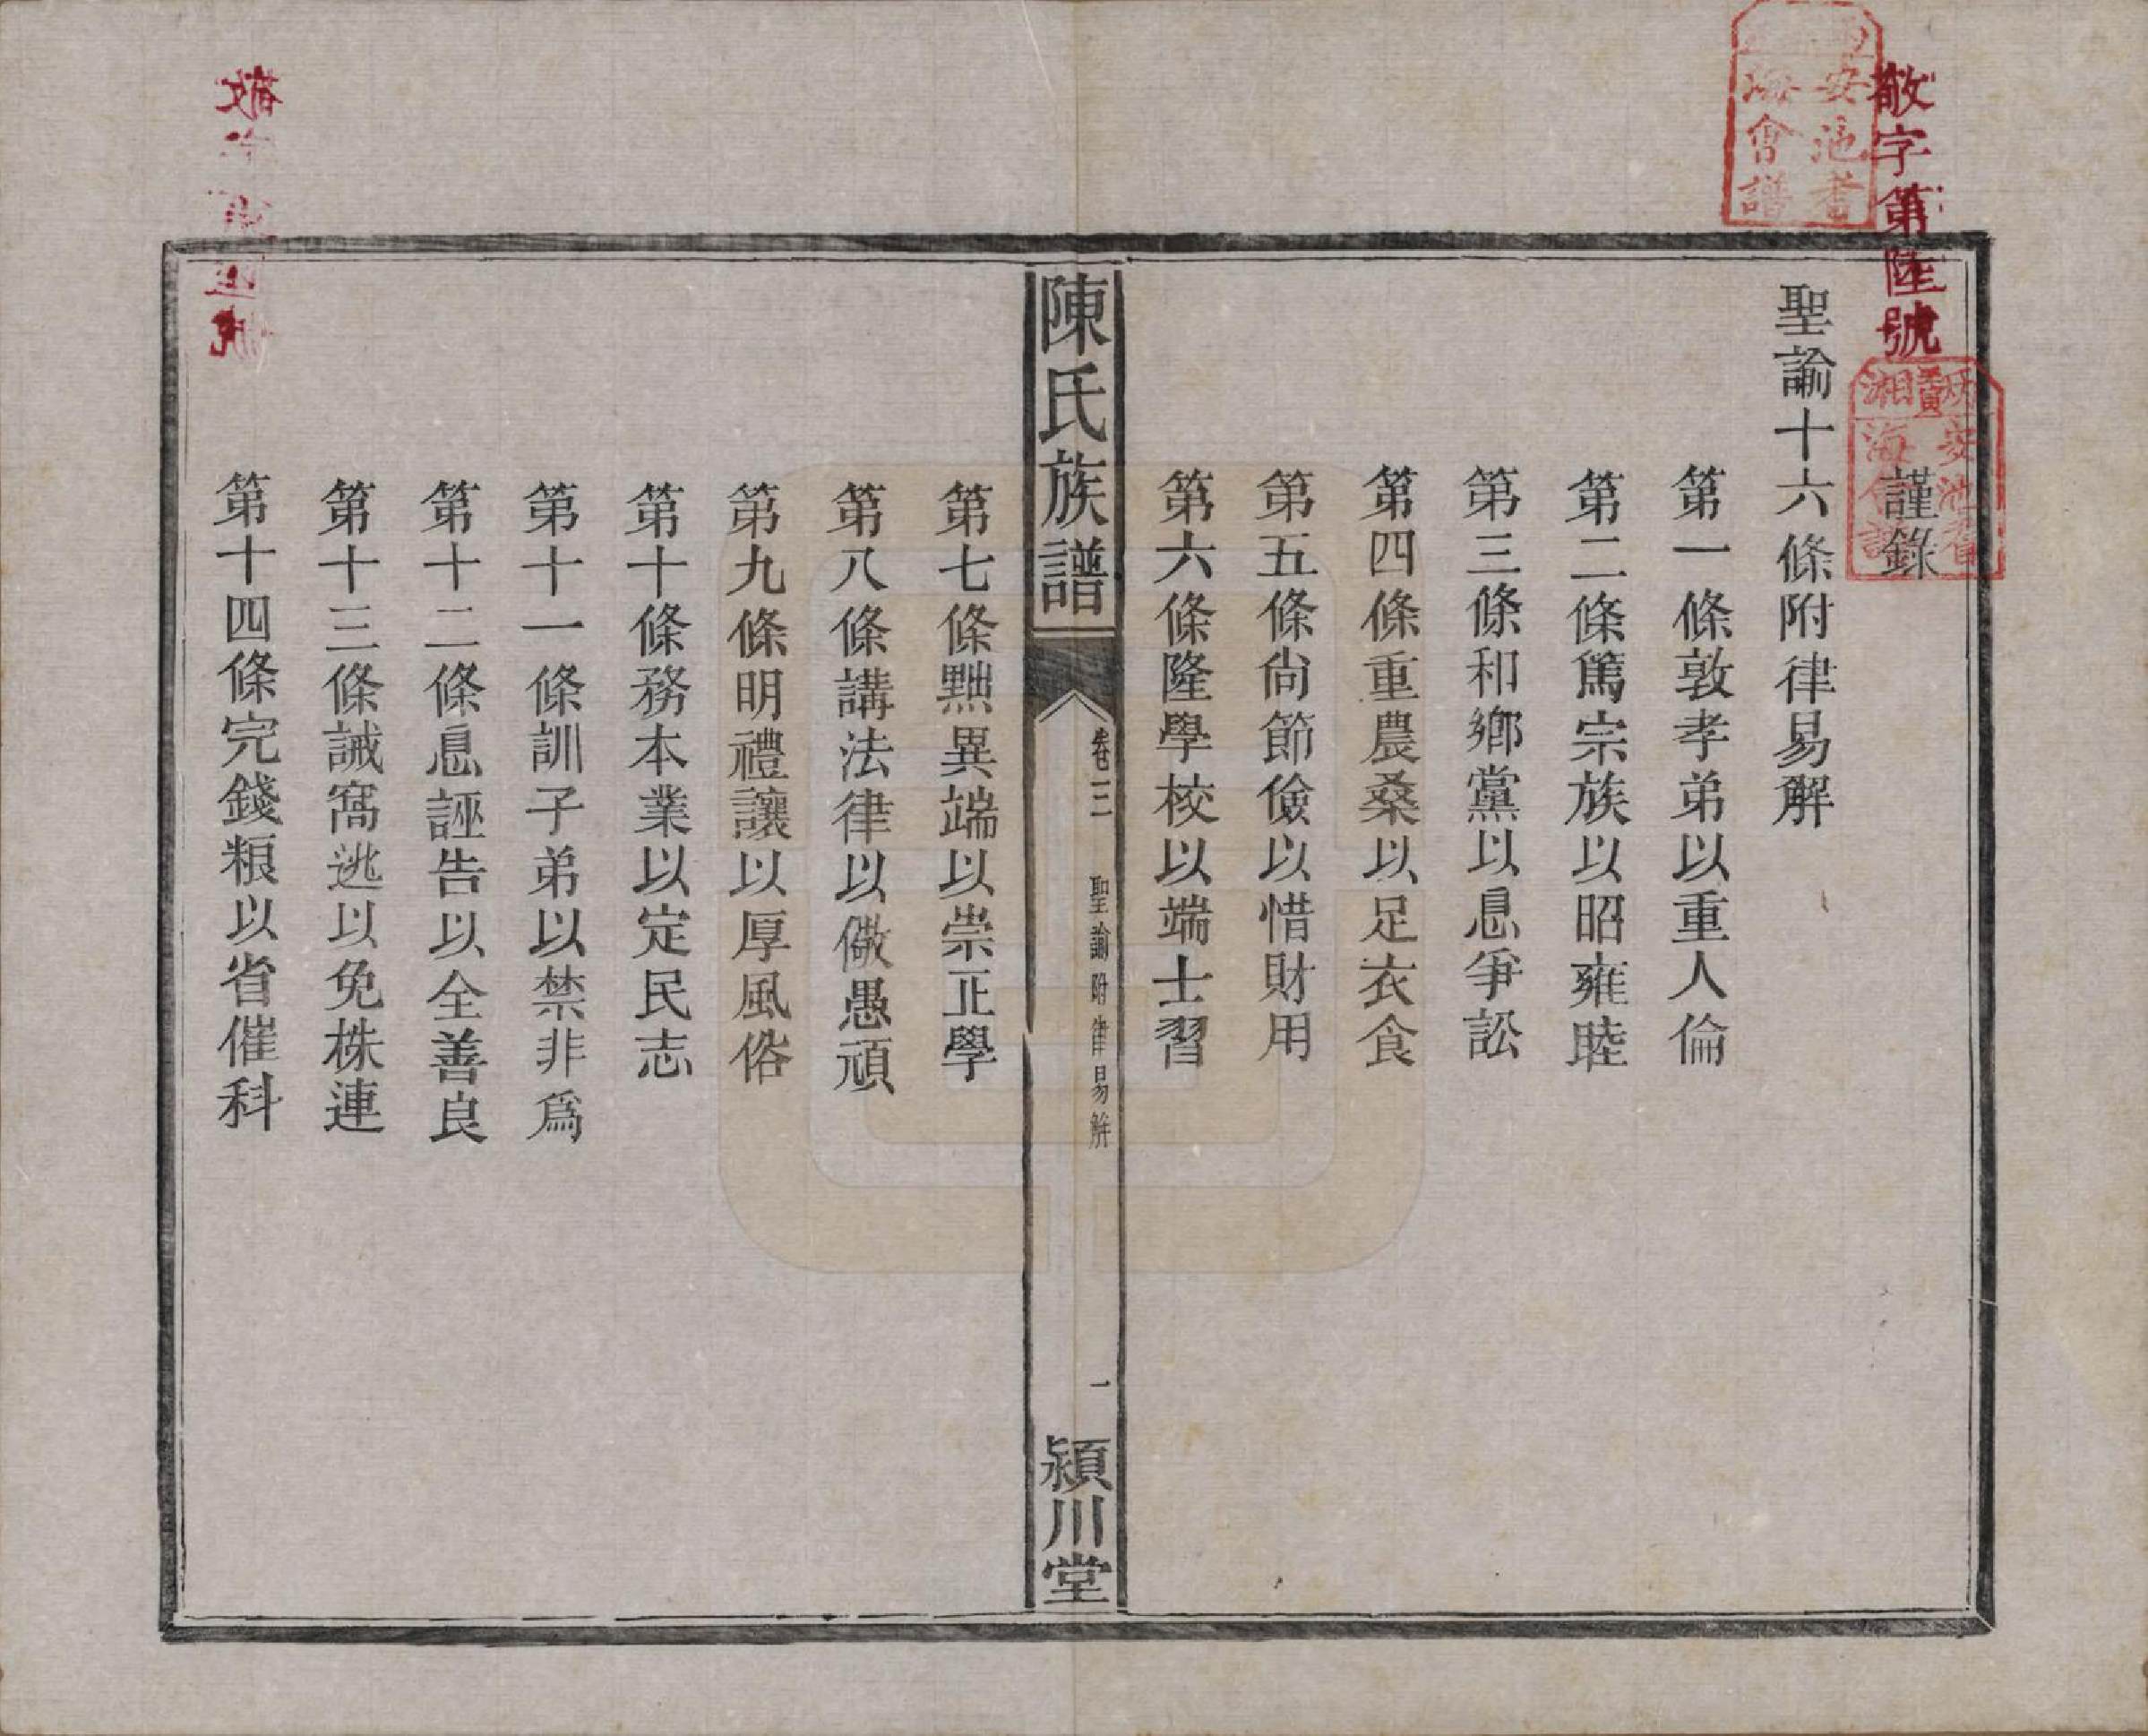 敬字第陸號
謹錄
聖諭十六條附律易解
第一條敦孝弟以重人倫
第二條篤宗族以昭雍睦
第三條和鄉黨以息爭訟
第四條重農桑以足衣食
第五條尙節儉以惜財用
第六條隆學校以端士習
陳氏族譜
卷三
聖諭附律易解
一
潁川堂
第七條黜異端以崇正學
第八條講法律以儆愚頑
第九條明禮讓以厚風俗
第十條務本業以定民志
第十一條訓子弟以禁非爲
第十二條息誣告以全善良
第十三條誡窩逃以免株連
第十四條完錢粮以省催科